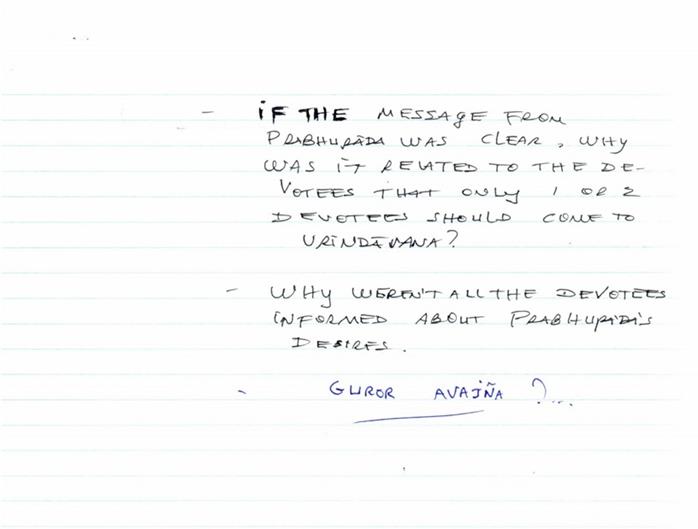 - IF THE MESSAGE FROM
PRABHUPĀDA WAS CLEAR, WHY
WAS IT RELATED TO THE DE-
VOTEES THAT ONLY 1 OR 2
DEVOTEES SHOULD COME TO
VRINDĀVANA?
- WHY WEREN'T ALL THE DEVOTEES
INFORMED ABOUT PRABHUPĀDA'S
DESIRES.
- GUROR AVAJÑA ?...